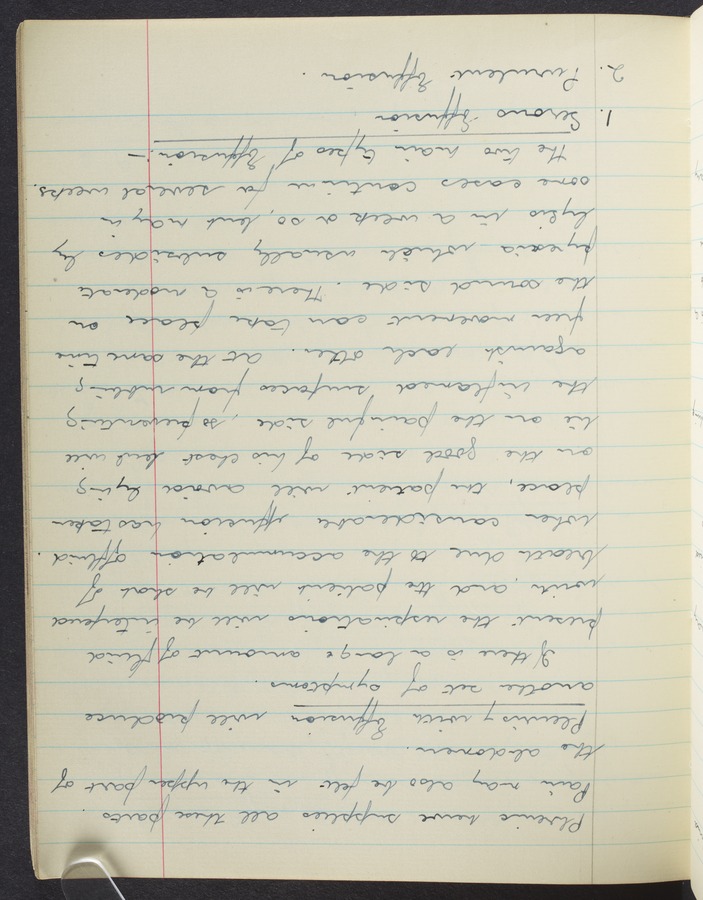 Phrenic nerve supplies all these parts
Pain may also be felt in the upper part of
the abdomen.
Pleurisy with Effusion will produce
another set of symptoms.
If there is a large amount of fluid
present the respirations will be interfered
with, and the patient will be short of
breath due to the accumulation of fluid.
when considerable effusion has taken
place, the patient will avoid lying
on the good side of his chest but will
lie on the painful side, so preventing
the inflamed surfaces from rubbing
against each other. at the same time
freer movement can take place on
the sound side. There is a moderate
pyrexia which usually subsides by
lysis in a week or so, but may in
some cases continue for several weeks.
the two main types of Effusion:-
1. Serous Effusion
2. Purulent Effusion.